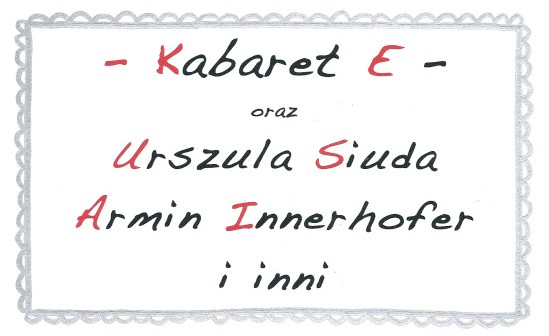 - Kabaret E -
oraz
Urszula Siuda
Armin Innerhofer
i inni